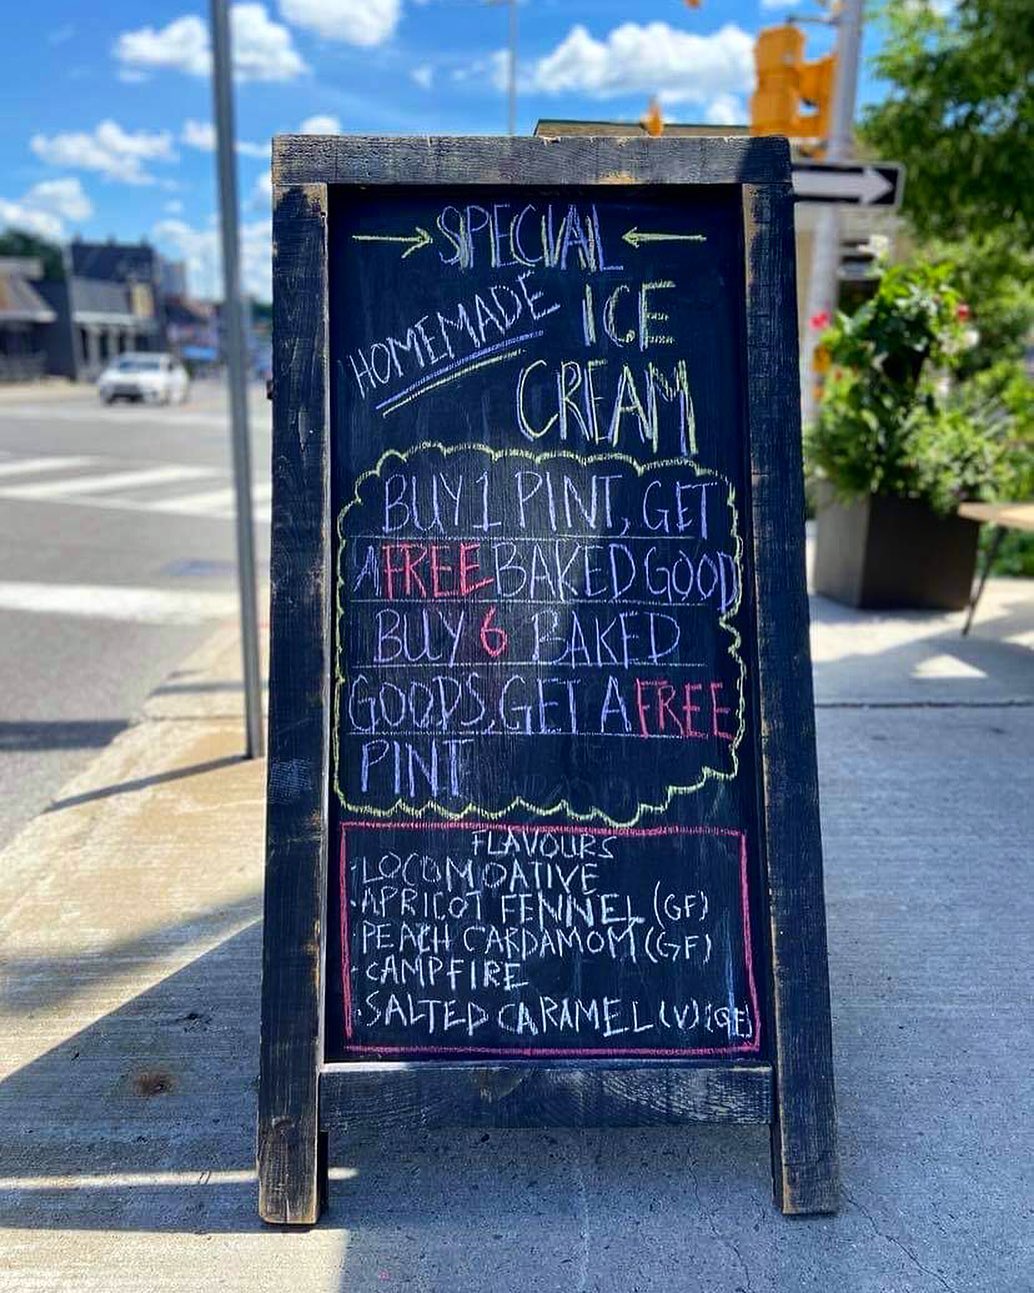 → SPECIAL ←
HOMEMADE ICE
CREAM
BUY 1 PINT, GET
A FREE BAKED GOOD
BUY 6 BAKED
GOODS, GET A FREE
PINT
FLAVOURS
· LOCOMOATIVE
· APRICOT FENNEL (GF)
· PEACH CARDAMOM (GF)
· CAMPFIRE
· SALTED CARAMEL (V) (GF)